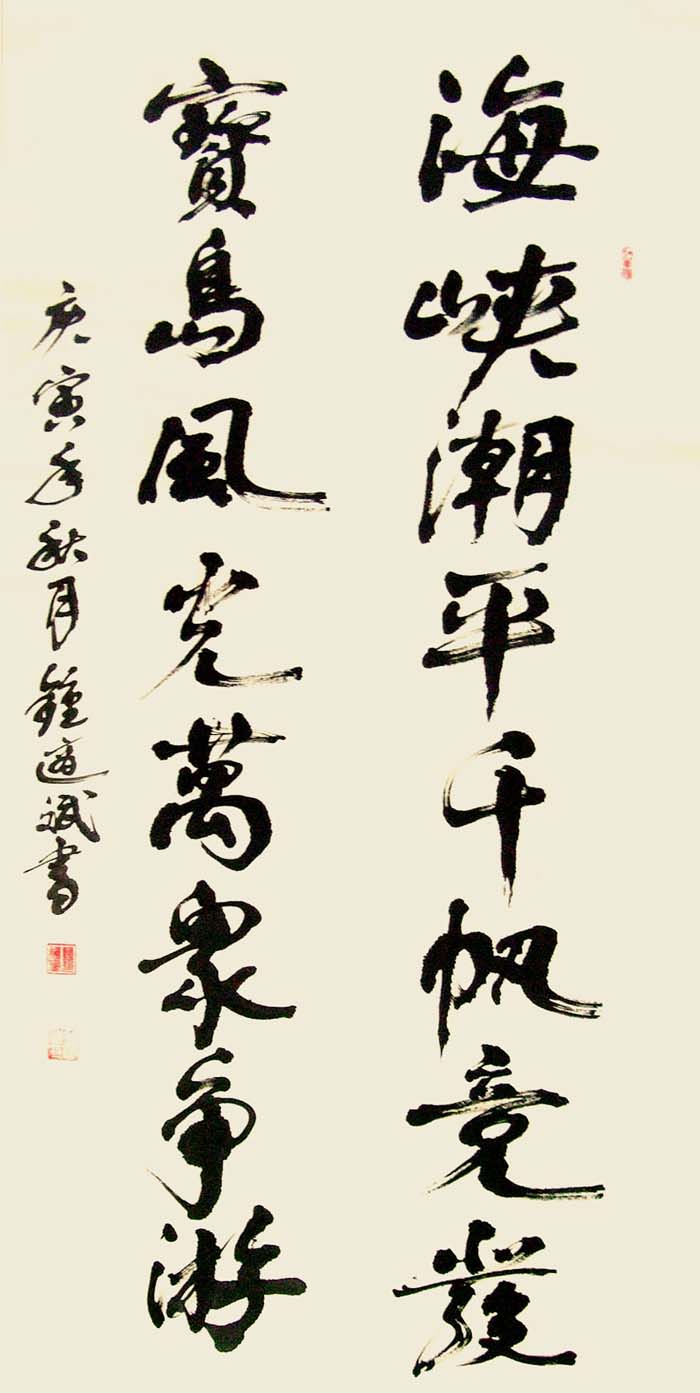 海峽潮平千帆竞發
寶島風光萬眾爭游
庚寅年秋月鍾道斌書